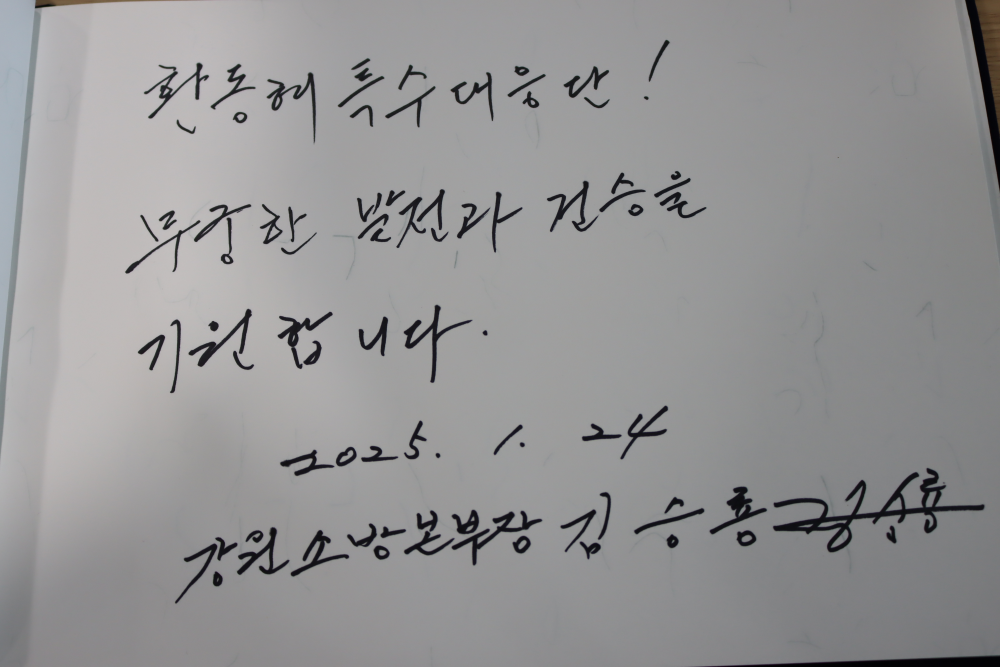 환동해 특수대응단!
무궁한 발전과 건승을
기원합니다.
2025. 1. 24
강원소방본부장 김승룡